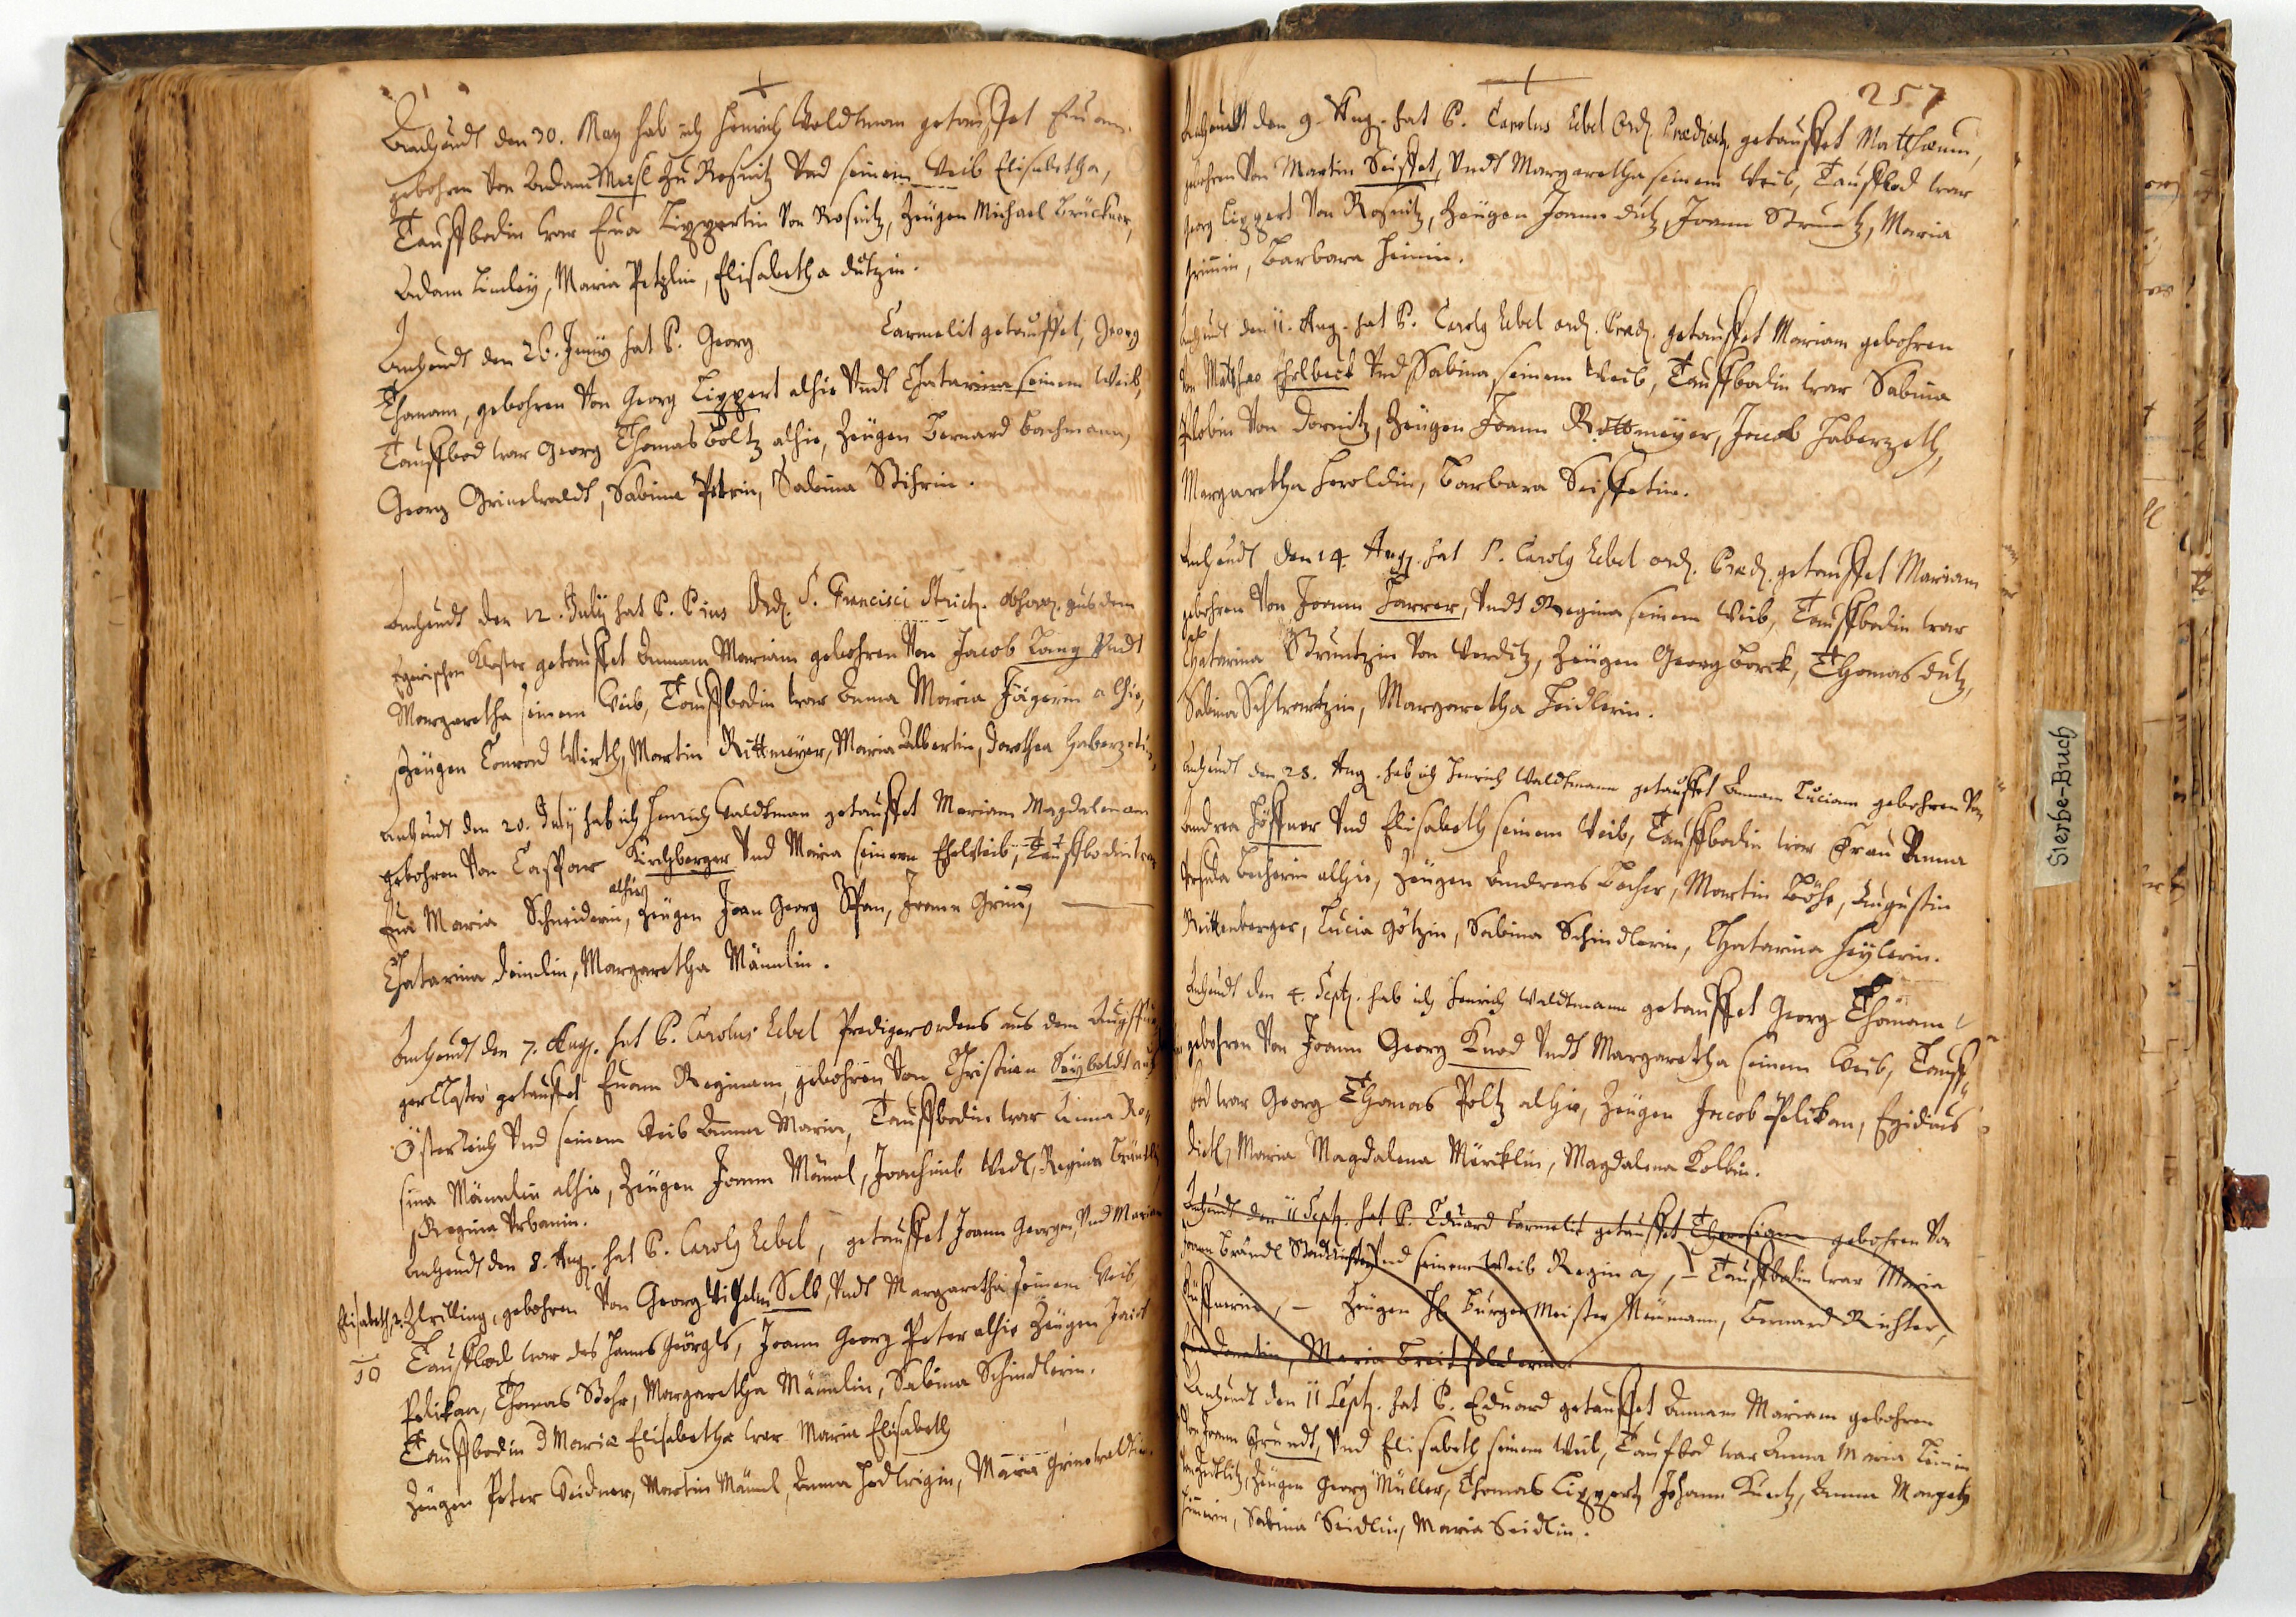 Anheudt den 30. May hab ich Henrich Waldtman getauffet Euam,
gebohren Von Adam Meisl zu Rosnitz Vnd seinem Weib Elisabetha,
Tauffbodin war Eua Lippertin Von Rosnitz, Zeügen Michael Brückner,
Adam Limley, Maria Petzlin, Elisabetha Dutzin.
Anheudt den 26. Juny hat P. Georg Carmelit getauffet, Georg
Thomam, gebohren Von Georg Lippert alhie Vndt Chatarina seinem Weib,
Tauffbod war Georg Thomas Boltz alhie, Zeügen Bernard Bachmann,
Georg Grinewaldt, Sabina Petrin, Sabina Stihrin.
Anheudt den 12. July hat P. Pius Ord. S. Francisci Strict. observ. aus dem
Egerischen Kloster getauffet Annam Mariam gebohren Von Jacob Lang Vndt
Margaretha seinem Weib, Tauffbodin war Anna Maria Jägerin alhie,
Zeügen Conrad Wirth, Martin Rittmeyer, Maria Albertin, Dorothea Haberzetin,
Anheudt den 20. July hab ich Henrich Waldtman getauffet Mariam Magdalenam
gebohren Von Caspar Kirchberger Vnd Maria seinem Eheweib, Tauffbodin war
Eua Maria Schneiderin, alhie Zeügen Joan Georg Span, Joann Grim,
Chatarina Deimlin, Margaretha Mämlin.
Anheudt den 7. Aug. hat P. Carolus Lebel Predigerordens aus dem
gerCloster getauffet Euam Reginam, gebohren Von Christian Seyboldt aus
Österreich Vnd seinem Weib Anna Maria, Tauffbodin war Anna Ro,,
sina Mämlin alhie, Zeügen Joann Mämel, Joachimb Wedl, Regina
Regina Vrbanin.
Anheudt den 8. Aug. hat P. Carolg Lebel, getauffet Joann Georgen, Vnd Mariam
Elisabeth, 2. Zwilling, gebohren Von Georg Wilhelm Selb, Vndt Margaretha seinem Weib
Tauffbod war des Hanns Geörgls, Joann Georg Peter alhie Zeügen Jacob
Pelikan, Thomas Bohr, Margaretha Mämlin, Sabina Schindlerin.
Tauffbodin d Mariæ Elisabethæ war Maria Elisabeth
Zeügen Peter Weidner, Martin Mämel, Anna Hedwigin, Maria Grinewaldtin.
257
Anheudt den 9. Aug. hat P. Carolus Lebel Ord. Prædicat. getauffet Matthæum,
gebohren Von Martin Seiffet, Vndt Margaretha seinem Weib, Tauffbod war
Georg Lippert Von Rosnitz, Zeügen Joann Dutz, Joann Struntz, Maria
Grimin, Barbara Heinin.
Anheudt den 11. Aug. hat P. Carolg Lebel ord. Præd. getauffet Mariam gebohren
Von Mathæo Ehrlbeck Vnd Sabina seinem Weib, Tauffbodin war Sabina
Plobin Von Dornitz, Zeügen Joann Rittmeyer, Jacob Haberzeth,
Margaretha Heroldin, Barbara Seiffetin.
Anheudt den 14. Aug. hat P. Carolg Lebel ord. Præd. getauffet Mariam
gebohren Von Joann Farrer, Vndt Regina seinem Weib, Tauffbodin war
Chatarina Struntzin Von Verditz, Zeügen Georg Borck, Thomas Dutz,
Sabina Schwartzin, Margaretha Feidlerin.
Anheudt den 28. Aug. hab ich Henrich Waldtmann getauffet Annam Luciam gebohren Von
Andrea Höffner Vnd Elisabeth seinem Weib, Tauffbodin war Frau Anna
Vrsula Becherin alhie, Zeügen Andreas Bocher, Martin Böhr, Augustin
Reittenberger, Lucia Götzin, Sabina Schindlerin, Chatarina Heylerin.
Anheudt den 4. Sept. hab ich Henrich Waldtmann getauffet Georg Thomam
gebohren Von Joann Georg Knod Vndt Margaretha seinem Weib, Tauff
bod war Georg Thomas Poltz alhie, Zeügen Jacob Pelikan, Egidius
Dietl, Maria Magdalena Märcklin, Magdalena Kolbin.
Anheudt den 11 Sept. hat P. Eduard Carmelit getauffet Theresiam gebohren Von
Joann Brändl Stadtrichter Vnd seinem Weib Regina, – Tauffbodin war Maria
Küffnerin, – Zeügen H. Burgermeister Neümann, Bernard Richter,
Eua Donatin, Maria Breitfelderin
Anheudt den 11 Sept. hat P. Eduard getauffet Annam Mariam gebohren
Von Joann Grundt, Vnd Elisabeth seinem Weib, Taufbod war Anna Maria
Zeügen Georg Müller, Thomas Lippert, Johann Kuntz, Anna Margeth
Sabina Seidlin, Maria Seidlin.
Sterbe-Buch